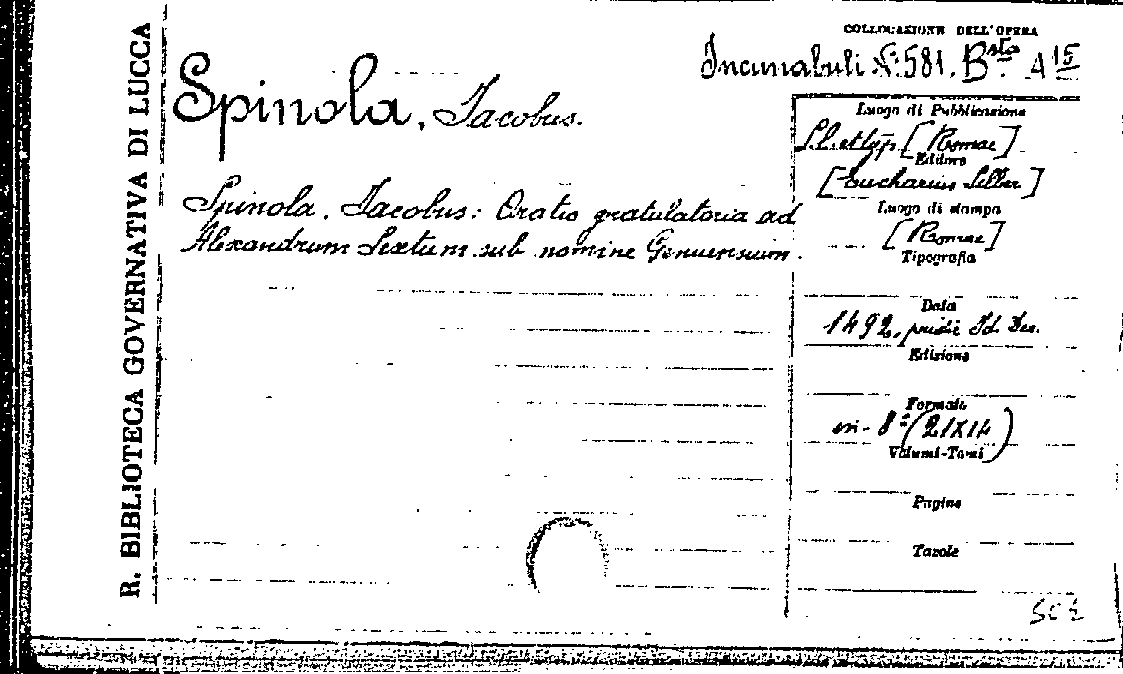 R. BIBLIOTECA GOVERNATIVA DI LUCCA
COLLOCAZIONE DELL'OPERA
Incunabuli N. 581. Bsta A 15
Spinola, Jacobus.
Spinola, Jacobus: Oratio gratulatoria ad
Alexandrum Sextum sub nomine Genuensium.
Luogo di Pubblicazione
S.l. et typ. [Romae]
Editore
[Eucharius Silber]
Luogo di stampa
[Romae]
Tipografia
Data
1492, pridie Id. Dec.
Edizione
Formato
in-8° (21X14)
Volumi-Tomi
Pagine
Tavole